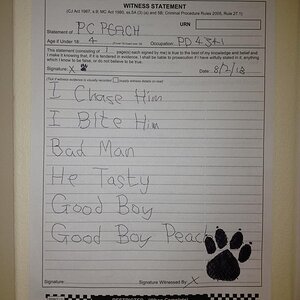 WITNESS STATEMENT
(CJ Act 1967, s.9; MC Act 1980, ss.5A (3) (a) and 5B; Criminal Procedure Rules 2005, Rule 27.1)
URN
Statement of PC PEACH
Age if Under 18 4 Occupation PD 4341
This statement (consisting of page(s) each signed by me) is true to the best of my knowledge and belief and
I make it knowing that, if it is tendered in evidence, I shall be liable to prosecution if I have wilfully stated in it, anything
which I know to be false, or do not believe to be true.
Signature: X Date
I Chase Him
I Bite Him
Bad Man
He Tasty
Good Boy
Good Boy Peach
Signature: Signature Witnessed by X